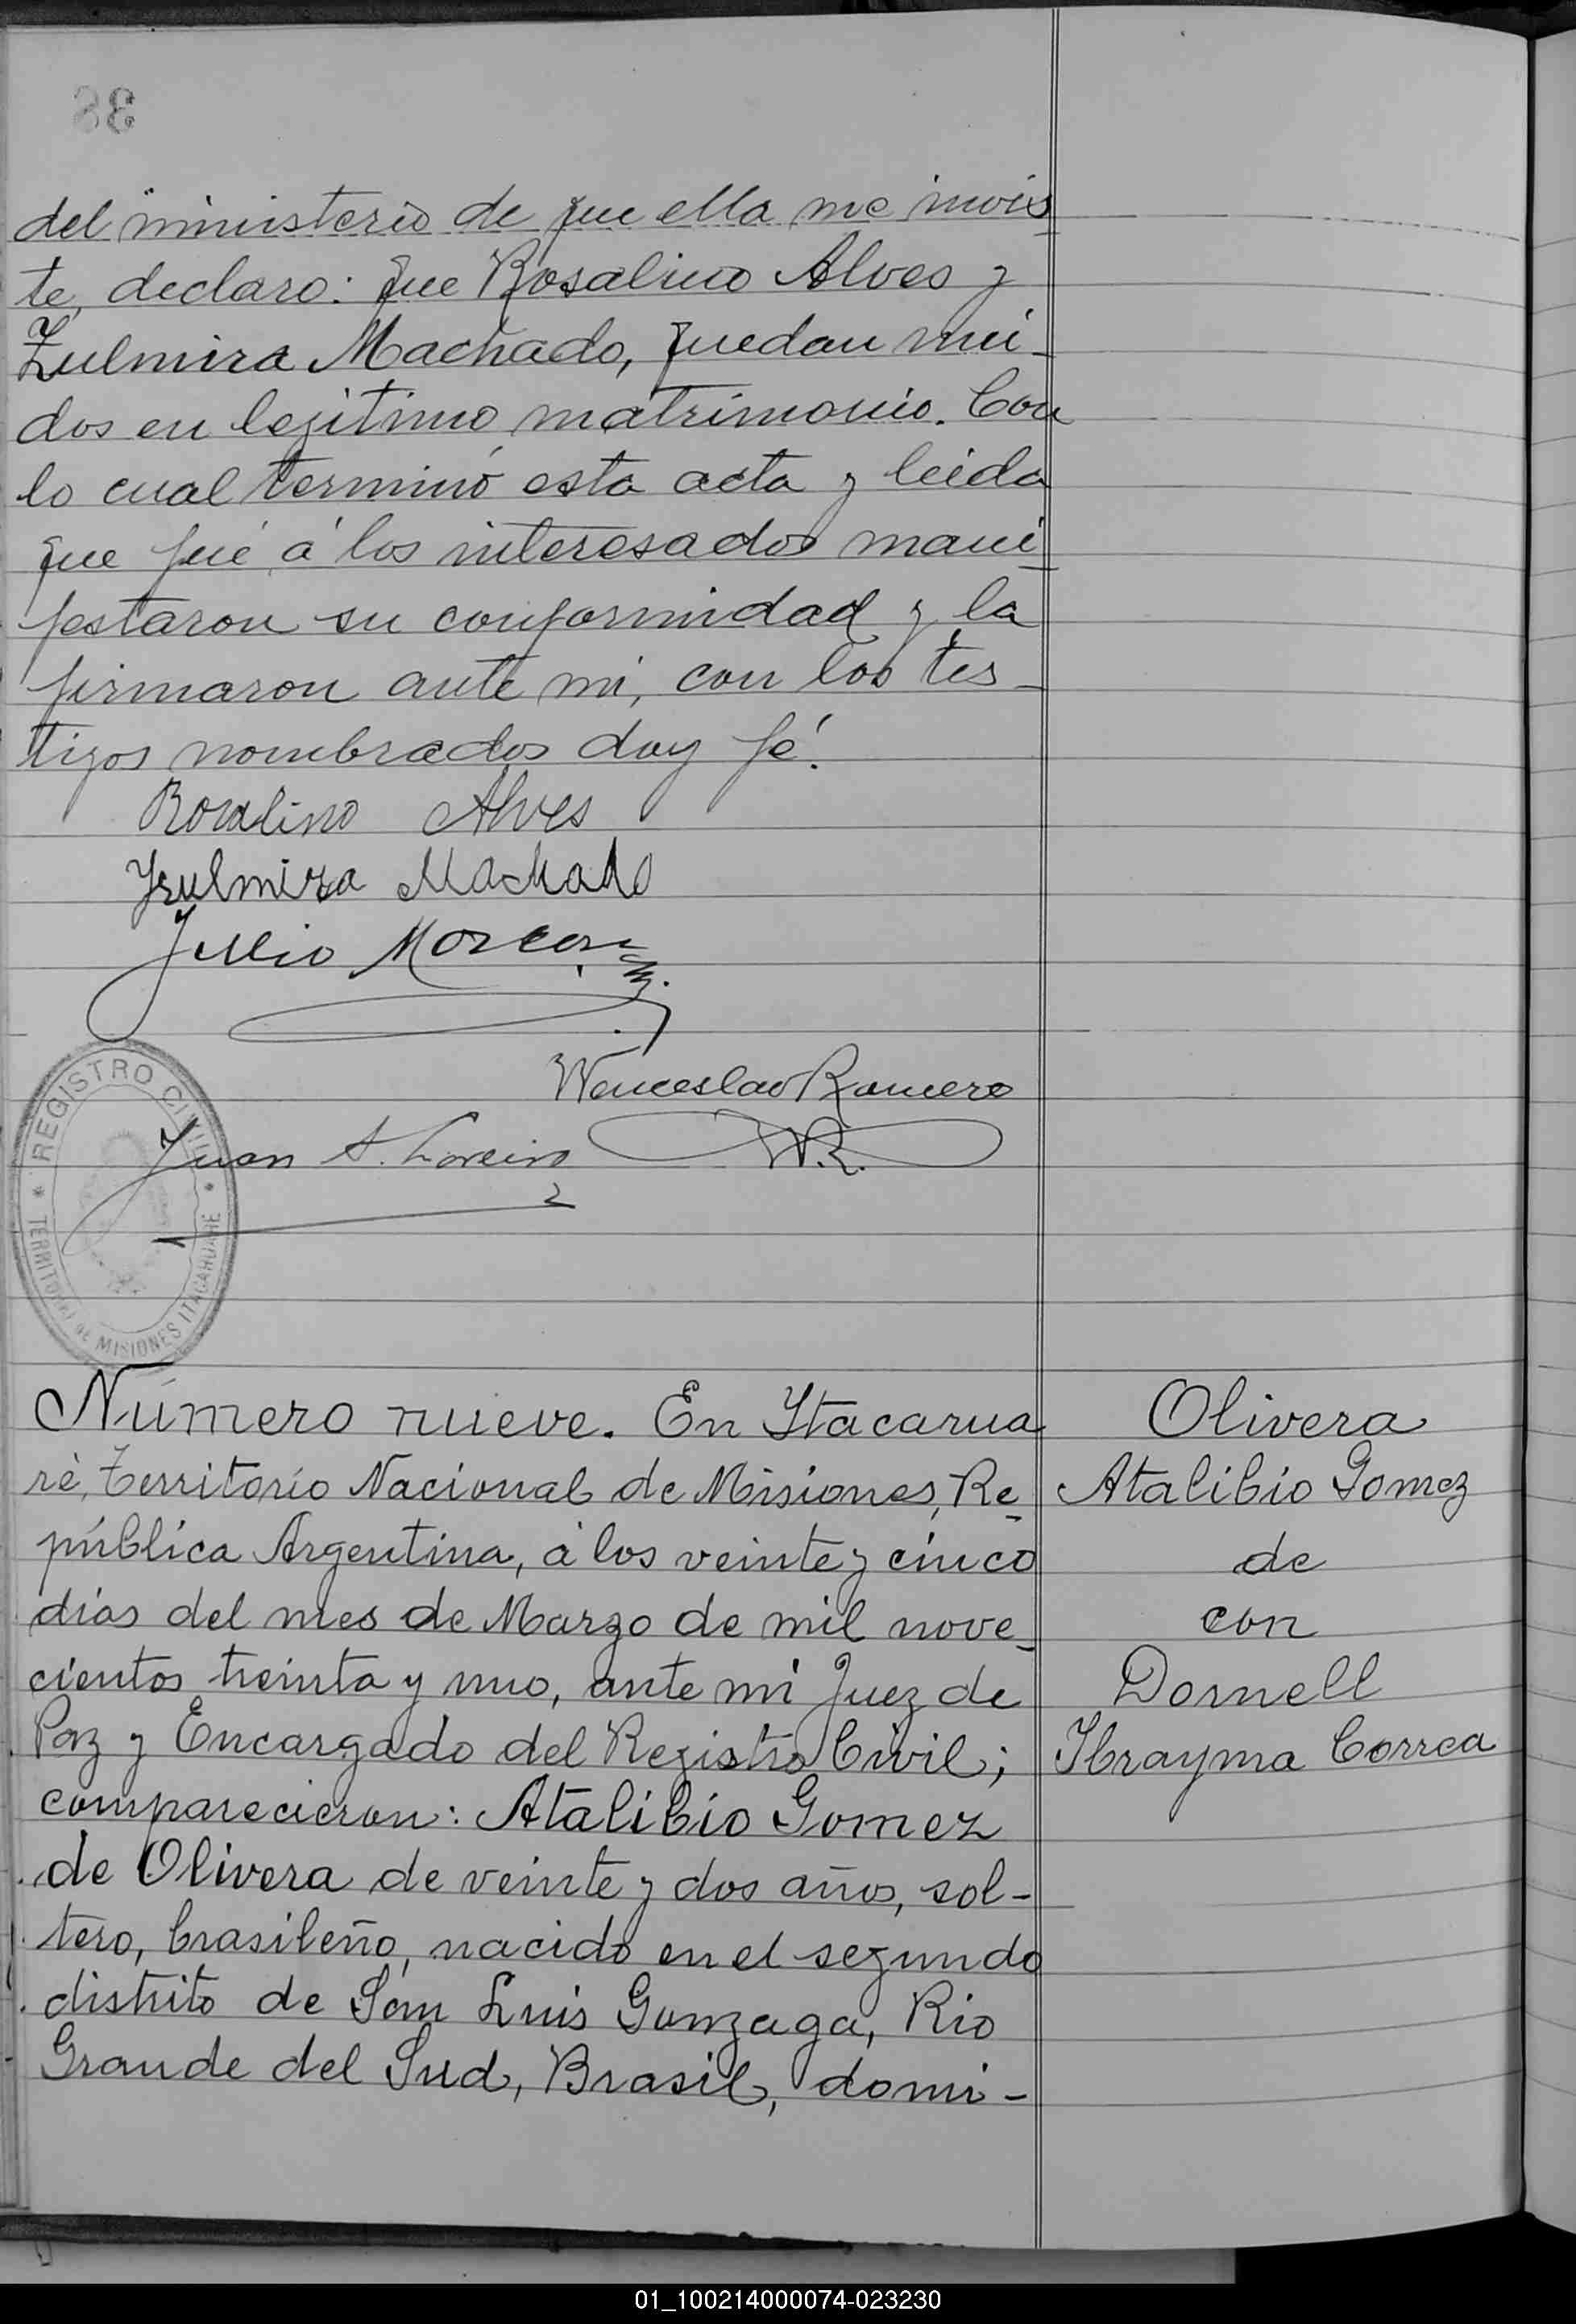 38
del ministerio de que ella me invis
te, declaro: que Rosalino Alves y
Zulmira Machado, quedan uni-
dos en legitimo matrimonio. Con
lo cual terminó esta acta y leida
que fué á los interesados mani-
festaron su conformidad y la
firmaron ante mi, con los tes-
tigos nombrados doy fé.
Rosalino Alves
Machado
Julio
Wenceslao Romero
Juan A.
W.R.
REGISTRO CIVIL
TERRITORIO DE MISIONES ITACARUARE
Número nueve. En Ytacarua
ré, Territorio Nacional de Misiones, Re-
pública Argentina, á los veinte y cinco
dias del mes de Marzo de mil nove-
cientos treinta y uno, ante mi Juez de
Paz y Encargado del Registro Civil;
comparecieron: Atalibio Gomez
de Olivera de veinte y dos años, sol-
tero, brasileño, nacido en el segundo
distrito de San Luis Gonzaga, Rio
Grande del Sud, Brasil, domi-
Olivera
Atalibio Gomez
de
con
Dornell
Ibrayma Correa
01_100214000074-023230